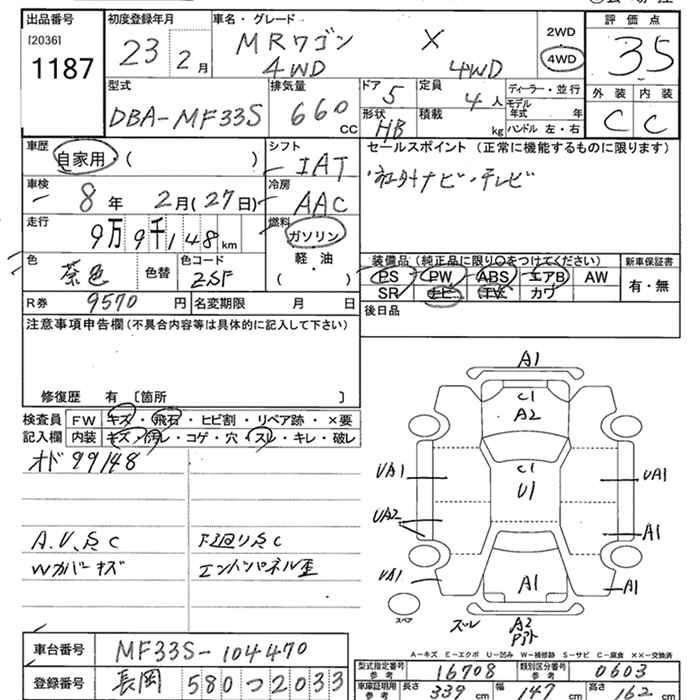 出品番号
[2036]
1187
初度登録年月
23 2月
車名・グレード
MRワゴン X
4WD 4WD
2WD
4WD
評価点
35
外装 内装
C C
型式
DBA-MF33S
排気量
660 CC
ドア
5
形状
HB
定員
4人
積載
kg
ディーラー・並行
モデル年式 年
ハンドル 左・右
車歴
自家用 ( )
シフト
IAT
車検
8年 2月(27日)
冷房
AAC
走行
9万9千148km
燃料
ガソリン
軽・油
( )
色
茶色
色替
色コード
ZSF
R券 9570円
名変期限 月 日
セールスポイント (正常に機能するものに限ります)
社外ナビ・テレビ
装備品(純正品に限り○をつけてください)
PS PW ABS エアB AW
SR ナビ TV カワ
新車保証書
有・無
後日品
注意事項申告欄(不具合内容等は具体的に記入して下さい)
修復歴 有 [箇所 ]
検査員
記入欄
FW キズ・飛石・ヒビ割・リペア跡・×要
内装 キズ・汚レ・コゲ・穴・スレ・キレ・破レ
オド 99148
A.V.点C
Wカバーキズ
下廻り点C
エンドパネル歪
A1
C1
A2
C1
U1
UA1
UA1
UA2
A1
UA1
A1
A1
スペア
ズレ
A2
A-キズ E-エクボ U-凹み W-補修跡 S-サビ C-腐食 ××-交換済
車台番号 MF33S-104470
登録番号 長岡 580つ2033
型式指定番号 参考 16708
類別区分番号 参考 0603
車庫証明用 参考 長さ 339cm 幅 147cm 高さ 162cm